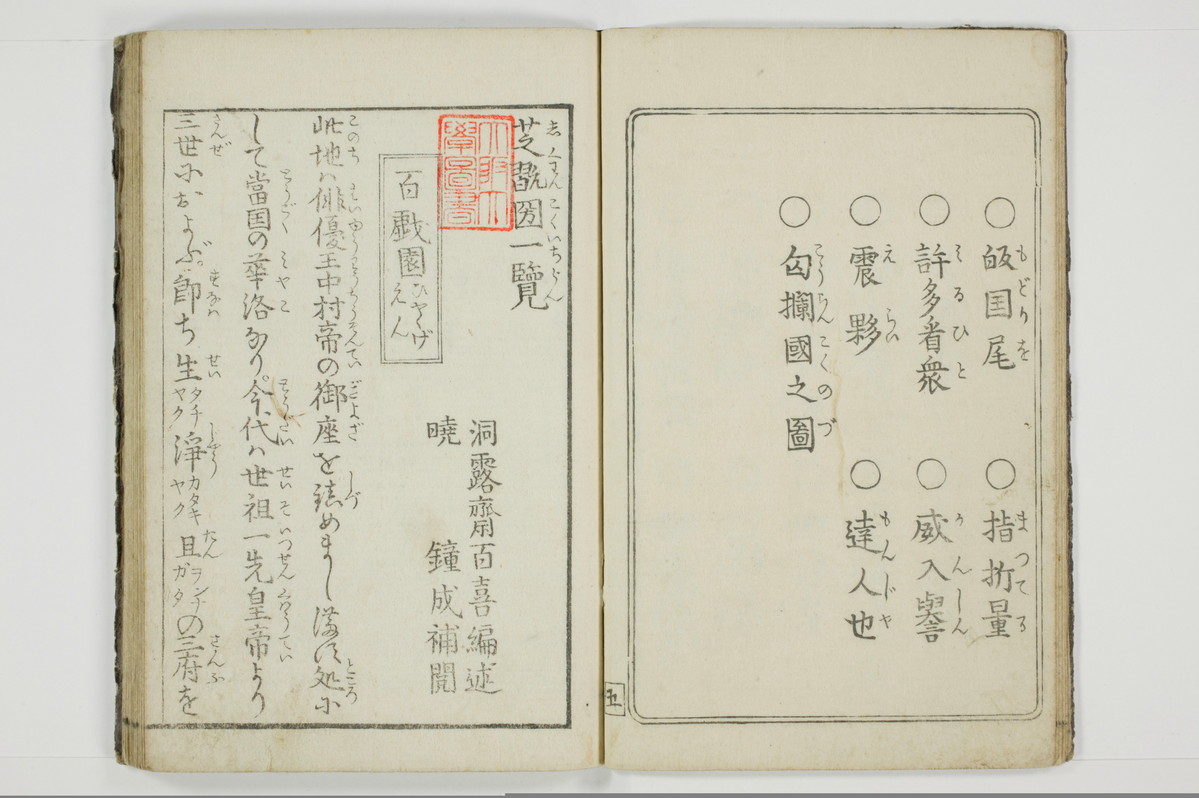 〇皈国尾 〇指折量
もどりを まつてる
〇許多看衆 〇威入譽
みるひと かんしん
〇震夥 〇達人也
えらい もんじや
〇匂攔國之圖
こうらんこくのづ
五
芝翫圀一覽
しくわんこくいちらん
洞露齋百喜編述
暁 鐘成補閲
百戯園 ひやくげえん
此地ハ俳優王中村帝の御座を鎮めまし満須処に
して當国の華洛なり。今代ハ世祖一先皇帝より
三世におよぶ。即ち生タチヤク浄カタキヤク旦ヲンナガタの三府を